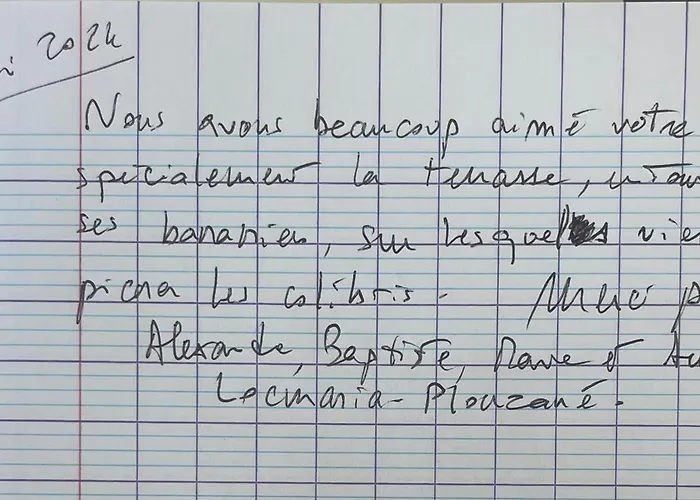 i 2024
Nous avons beaucoup aimé votre
spécialement la terrasse, entou
ses bananiers, sur lesquels vie
picorer les colibris. Merci p
Alexandre, Baptiste, et
Locmaria-Plouzané.